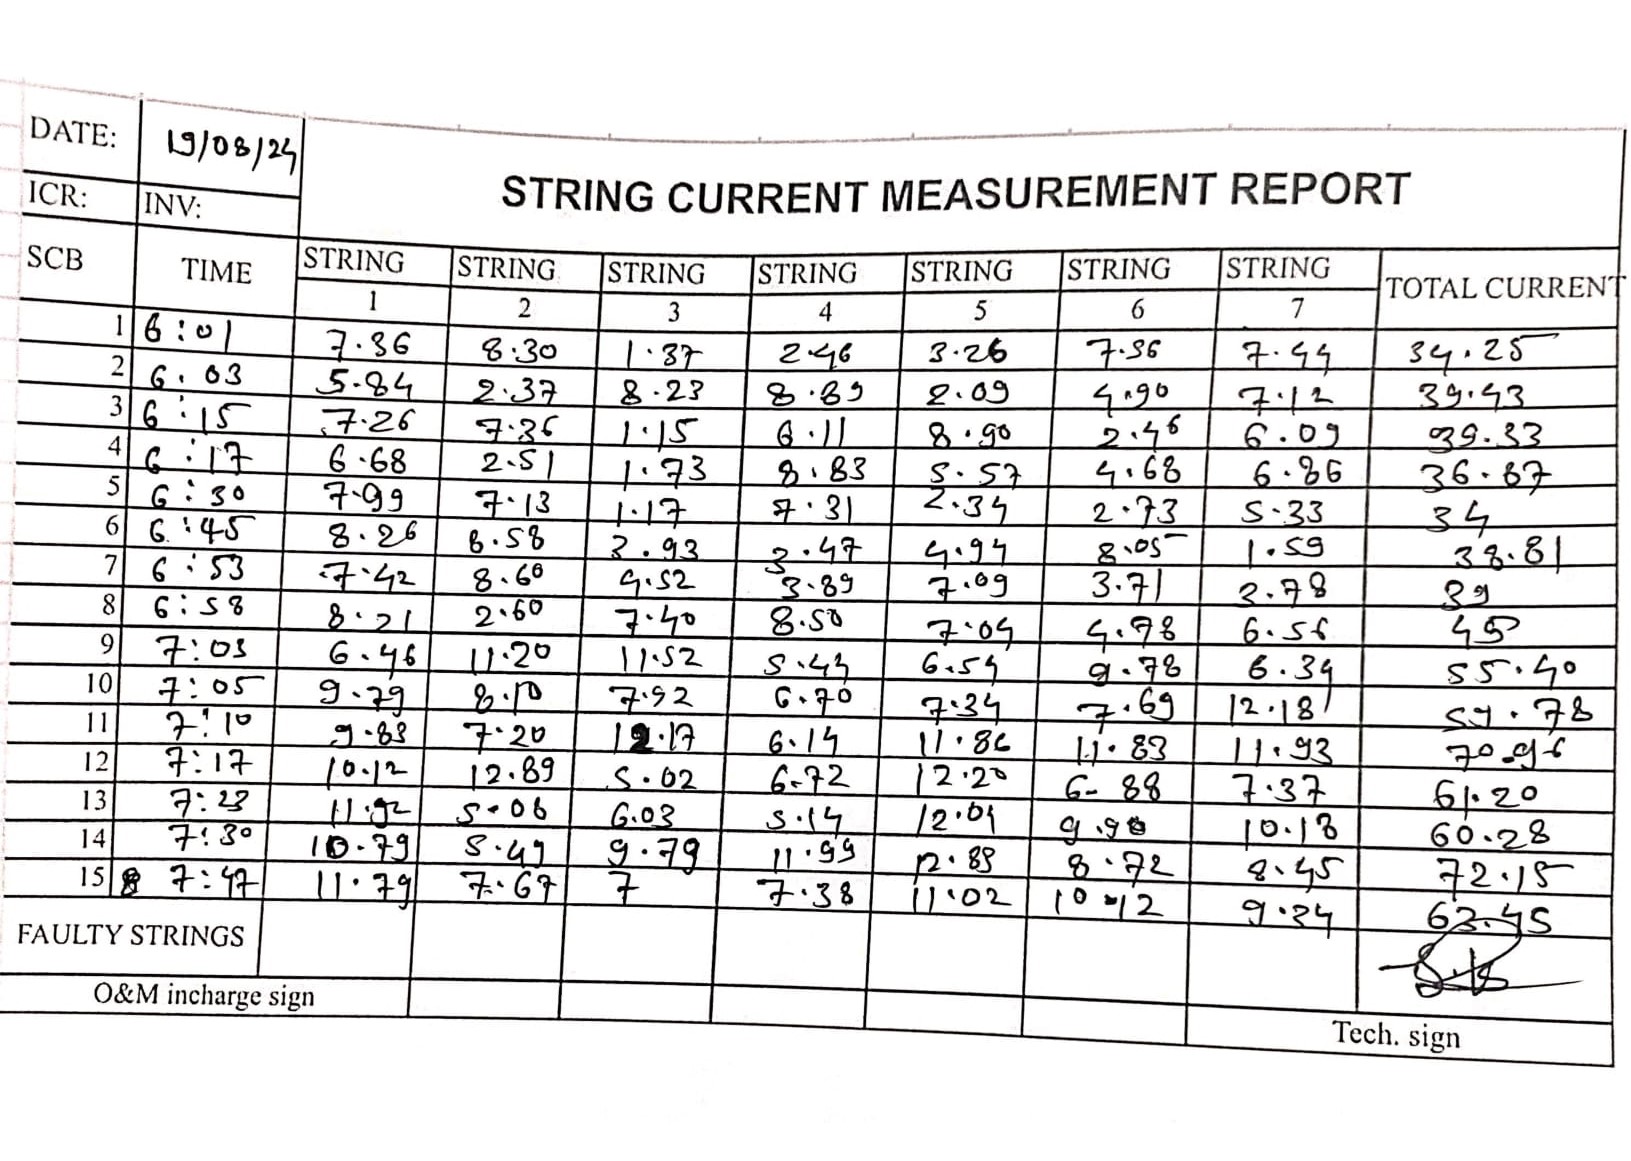 DATE: 19/08/24
STRING CURRENT MEASUREMENT REPORT
ICR: INV:
SCB TIME STRING STRING STRING STRING STRING STRING STRING TOTAL CURRENT
1 2 3 4 5 6 7
1 6:01 7.36 8.30 1.37 2.46 3.26 7.56 7.44 34.25
2 6.03 5.84 2.37 8.23 8.89 2.09 4.90 7.12 39.43
3 6:15 7.26 7.36 1.15 6.11 8.90 2.46 6.09 39.33
4 6:17 6.68 2.51 1.73 8.83 5.57 4.68 6.86 36.87
5 6:30 7.99 7.13 1.17 7.31 2.34 2.73 5.33 34
6 6:45 8.26 8.58 3.93 3.47 4.94 8.05 1.59 38.81
7 6:53 7.42 8.60 4.52 3.89 7.09 3.71 3.78 39
8 6:58 8.21 2.60 7.40 8.50 7.04 4.78 6.56 45
9 7:03 6.46 11.20 11.52 5.44 6.54 9.78 6.34 55.40
10 7:05 9.79 8.10 7.92 6.70 7.34 7.69 12.18 59.78
11 7:10 9.83 7.20 12.17 6.14 11.86 11.83 11.93 70.96
12 7:17 10.12 12.89 5.02 6.72 12.20 6.88 7.37 61.20
13 7:23 11.92 5.06 6.03 5.14 12.01 9.90 10.18 60.28
14 7:30 10.79 5.49 9.79 11.99 12.89 8.72 8.45 72.15
15 7:47 11.79 7.67 7 7.38 11.02 10.12 9.34 63.45
FAULTY STRINGS
O&M incharge sign
Tech. sign